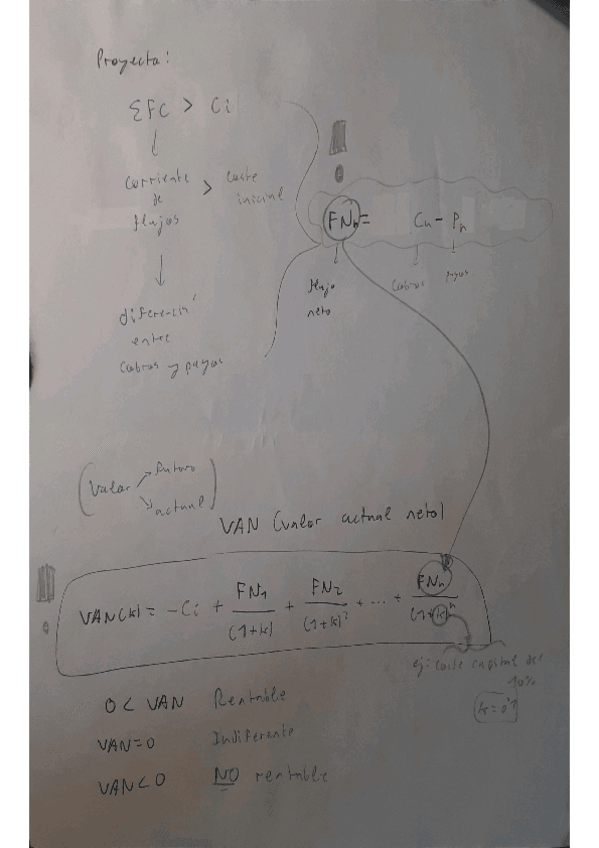 Proyecto:
ΣFC > Ci
Corriente de flujos > Coste inicial
diferencia entre Cobros y pagos
FNn = Cn - Pn
flujo neto
Cobros
pagos
(Valor futuro
actual)
VAN (valor actual neto)
VAN(k) = -Ci + FN1/(1+k) + FN2/(1+k)² + ... + FNn/(1+k)ⁿ
ej: coste capital del 10%
k=0'1
0 < VAN Rentable
VAN=0 Indiferente
VAN<0 NO rentable